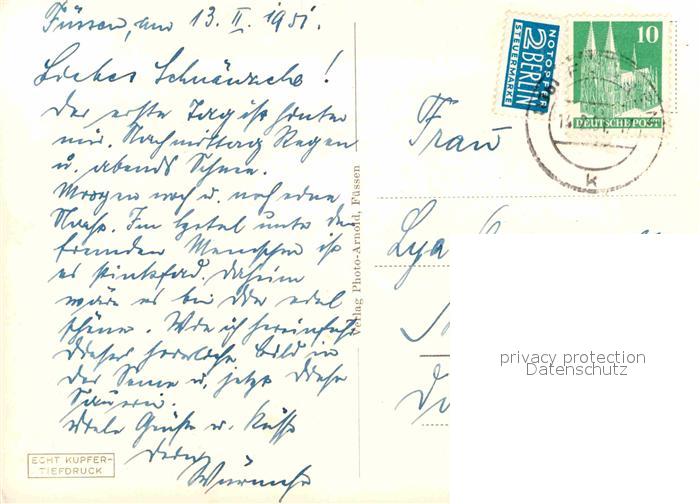 Füssen, am 13. II. 1951.
Liebes Schnäuzele!
Der erste Tag ist hinter
mir. Nachmittag Regen
u. abends Schnee.
Morgen noch u. noch eine
Im Hotel unter den
fremden Menschen ist
es stinkfad. Daheim
wäre es bei Dir
schöner. Wie ich hereinfuhr
dieses herrliche Bild in
der Sonne u. jetzt diese
Sauerei.
Viele Grüße u. Küsse
Dein
ECHT KUPFER-
TIEFDRUCK
Verlag Photo-Arnold, Füssen
NOTOPFER
2 BERLIN
STEUERMARKE
10
DEUTSCHE POST
k
Frau
Lya
privacy protection
Datenschutz